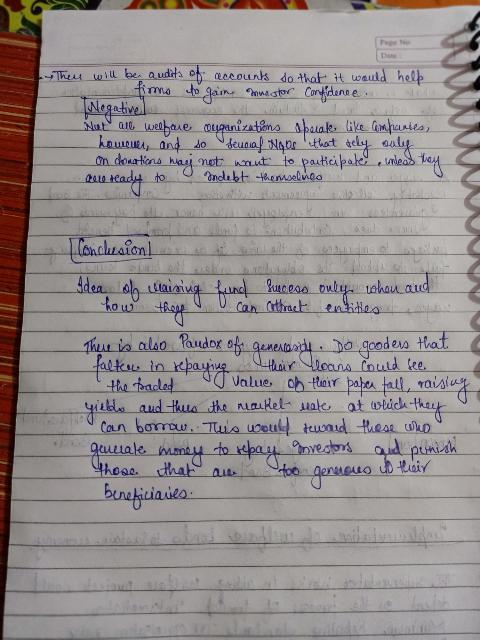 Page No:
Date:
→ There will be audits of accounts so that it would help
firms to gain investor confidence.
[Negative]
Not all welfare organizations operate like companies,
however, and so several NGOs that rely only
on donations may not want to participate, unless they
are ready to indebt themselves
[Conclusion]
Idea of raising fund success only when and
how they can attract entities
There is also Paradox of generosity. Do gooders that
falter in repaying their loans could see
the traded value of their paper fall, raising
yields and thus the market rate at which they
can borrow. This would reward those who
generate money to repay investors and punish
those that are too generous to their
beneficiaries.